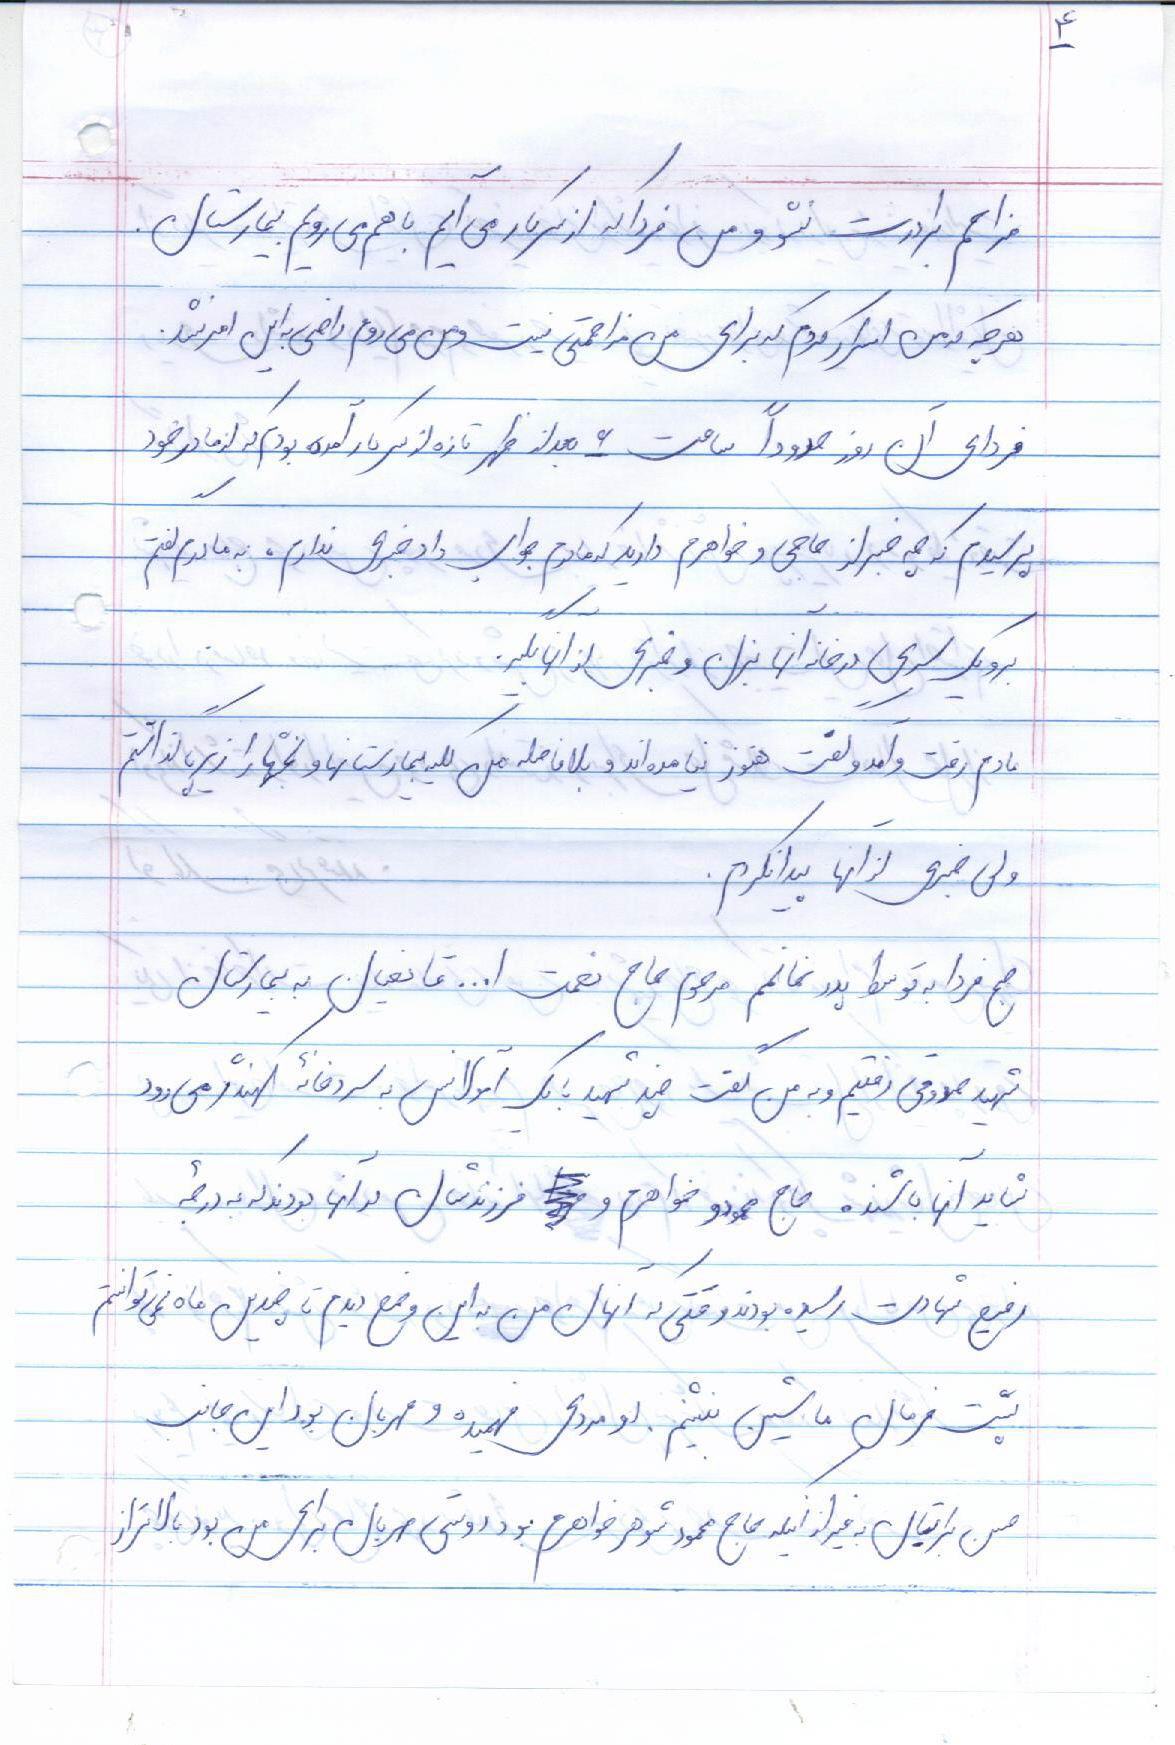 ۴۱
مزاحم برادرت نشو و من فردا که از سر کار می آیم با هم می رویم بیمارستان.
هر چه که من اصرار کردم که برای من مزاحمتی نیست و من می روم راضی به این امر نشد.
فردای آن روز حدوداً ساعت ۶ بعد از ظهر تازه از سر کار آمده بودم که از مادر خود
پرسیدم که چه خبر از حاجی و خواهرم دارید که مادرم جواب داد خبری ندارم، به مادرم گفتم
برو یک سری در خانه آنها بزن و خبری از آنها بگیر.
مادرم رفت و آمد و گفت هنوز نیامده اند و بلافاصله من کلیه بیمارستانها و را زیر پا گذاشتم
ولی خبری از آنها پیدا نکردم.
صبح فردا به توسط پدر خانمم مرحوم حاج نعمت ا... قانعیان به بیمارستان
شهید صدوقی رفتیم و به من گفت چند شهید با یک آمولانس به سردخانه کهندژ می رود
شاید آنها باشند. حاج محمود و خواهرم و فرزندشان در آنها بودند که به درجه
رفیع شهادت رسیده بودند وقتی که آنهان من به این وضع دیدم تا چندین ماه نمی توانستم
پشت فرمان ماشین بنشینم. او مردی فهمیده و مهربان بود این جانب
حسن به غیر از اینکه حاج محمود شوهر خواهرم بود دوستی مهربان برای من بود بالاتر از